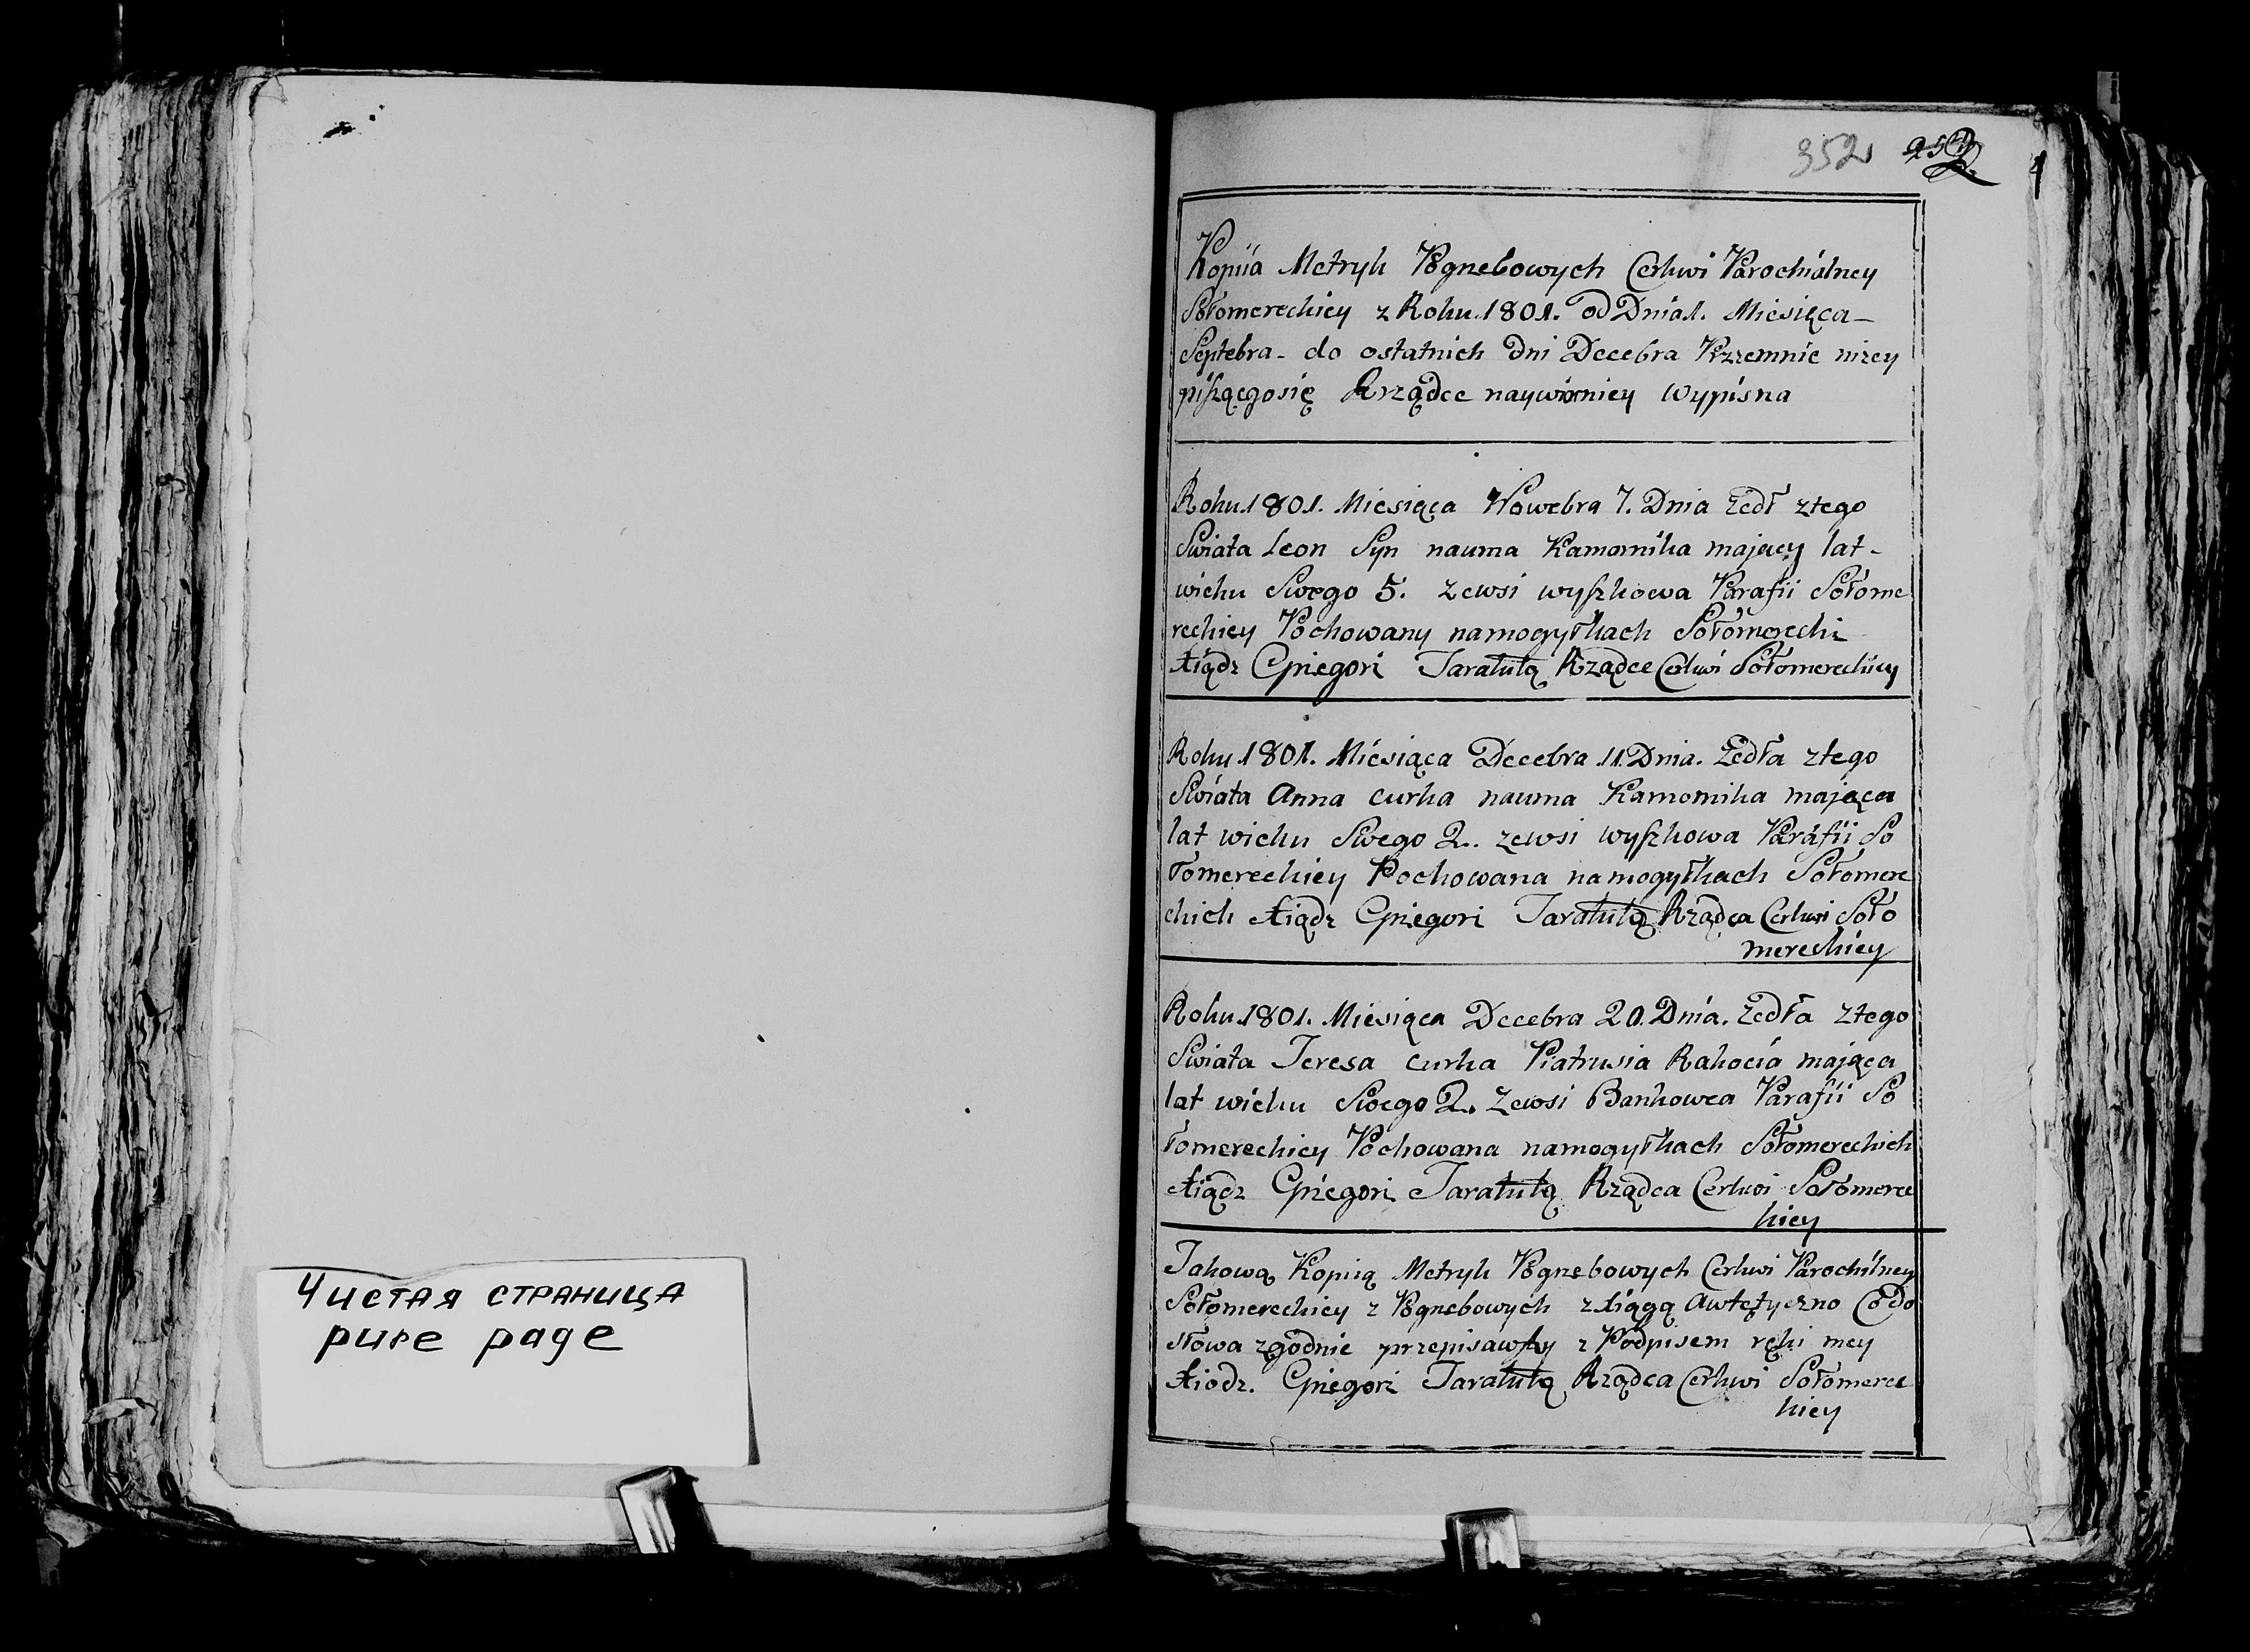 Чистая страница
pure page
352
Kopiia Metryk Pogrzebowych Cerkwi Parochialney
Sołomereckiey z Roku 1801. od Dnia 1. Miesięca
Septebra - do ostatnich Dni Decebra Przzemnie niżey
piszącgosię Rrządce naywierniey wypisna
Roku 1801. Miesiąca Nowebra 7. Dnia zedł ztego
Swiata Leon Syn nauma Kamornika maiący lat -
wieku Swego 5. zewsi wyszkowa Parafii Sołome
reckiey Pochowany namogyłkach Sołomerecki
Xiądz Grzegori Taratuta Rządce Cerkwi Sołomereckiey
Roku 1801. Miesiąca Decebra 11. Dnia. zedła ztego
Swiata Anna curka nauma Kamornika mająca
lat wieku Swego 2. zewsi wyszkowa Parafii So
łomereckiey Pochowana namogyłkach Sołomere
ckich Xiądz Grzegori Taratuta Rządca Cerkwi Soło
mereckiey
Roku 1801. Miesiąca Decebra 20. Dnia. zedła ztego
Swiata Teresa curka Piatrusia Rakocia mająca
lat wieku Swego 2. zewsi Bankowca Parafii So
łomereckiey Pochowana namogyłkach Sołomereckich
Xiądz Grzegori Taratuta Rządca Cerkwi Sołomerec
kiey
Takową Kopiią Metryk Pogrzebowych Cerkwi Parochilney
Sołomereckiey z Pogrzebowych zXiągą Awtętyczno Co do
słowa zgodnie przepisawszy z Podpisem ręki mey
Xiodz. Grzegori Taratuta Rządca Cerkwi Sołomerec
kiey